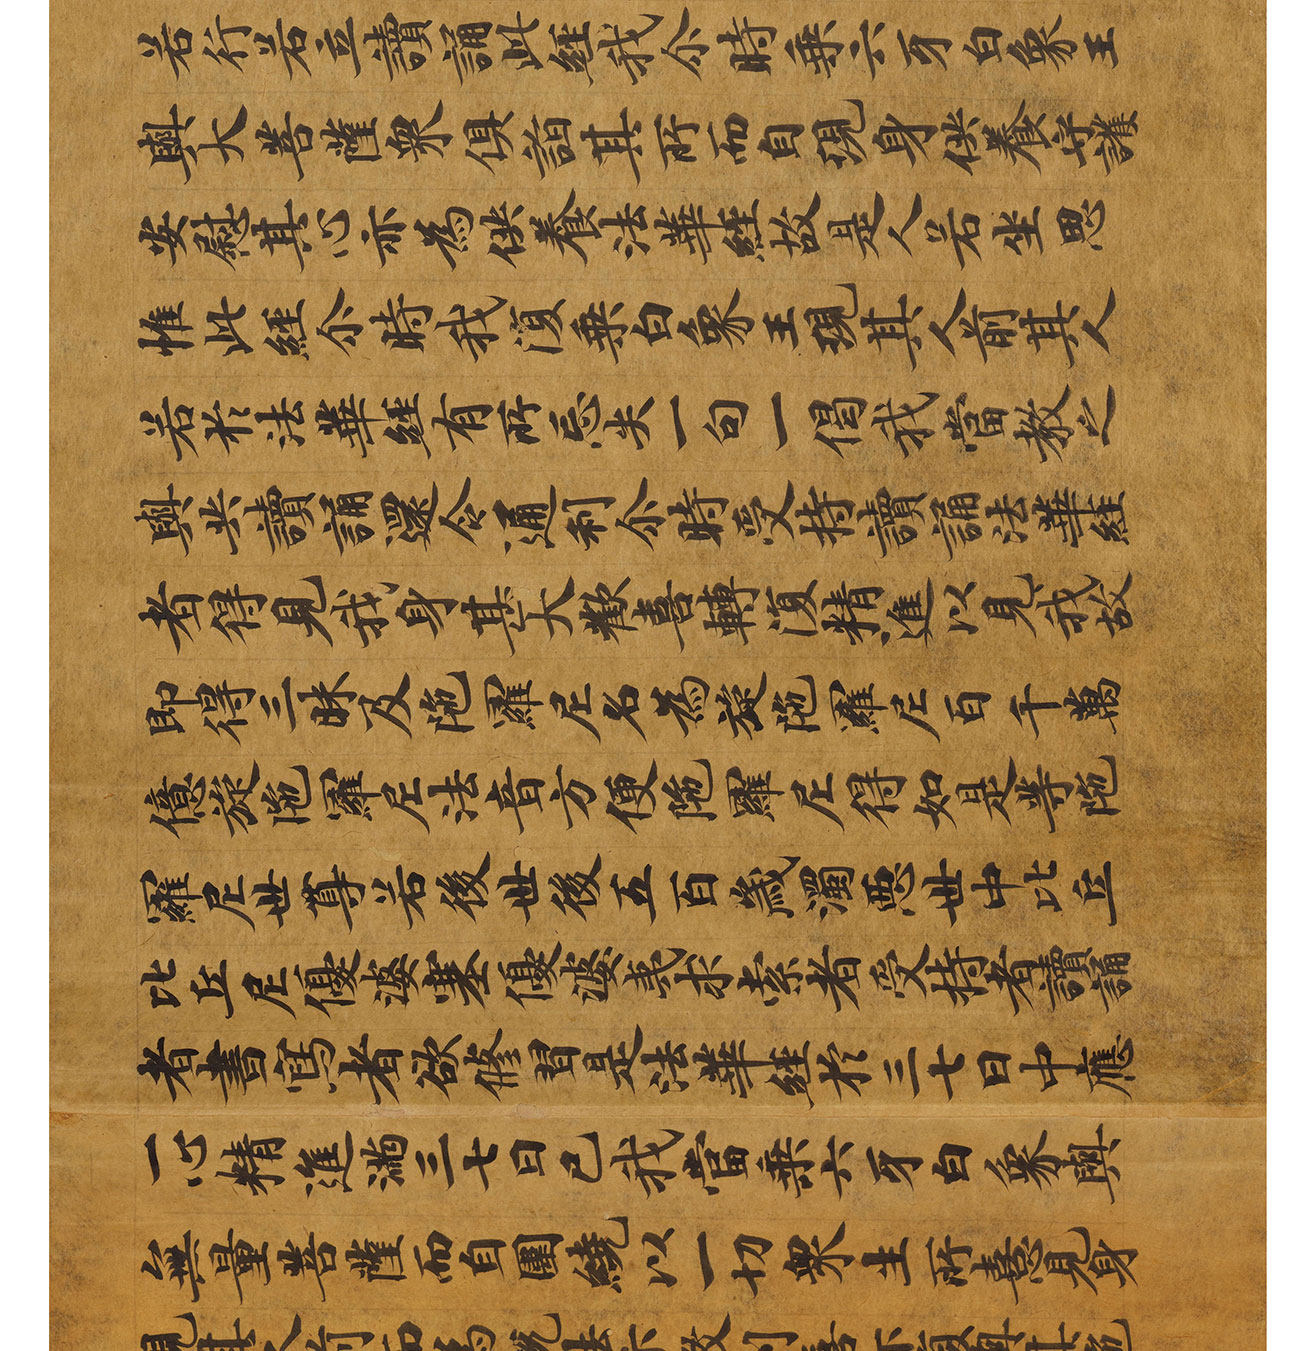 若行若立讀誦此經我尒時乗六牙白象王
與大菩薩衆俱詣其所而自現身供養守護
安慰其心亦為供養法華經故是人若坐思
惟此經尒時我復乗白象王現其人前其人
若於法華經有所忘失一句一偈我當教之
與共讀誦還令通利尒時受持讀誦法華經
者得見我身甚大歡喜轉復精進以見我故
即得三昧及陁羅尼名為旋陁羅尼百千萬
億旋陁羅尼法音方便陁羅尼得如是等陁
羅尼世尊若後世後五百歲濁惡世中比丘
比丘尼優婆塞優婆夷求索者受持者讀誦
者書寫者欲修習是法華經於三七日中應
一心精進滿三七日已我當乗六牙白象與
無量菩薩而自圍繞以一切衆生所憙見身
現其人前而為說法示教利喜亦復與其陁